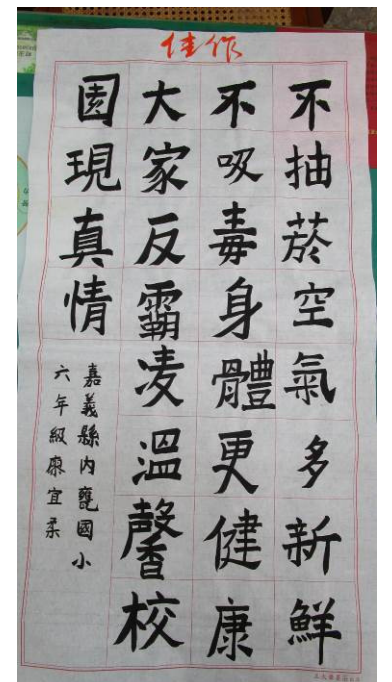 佳作
不抽菸空氣多新鮮
不吸毒身體更健康
大家反霸凌溫馨校
園現真情
嘉義縣內甕國小
六年級康宜柔